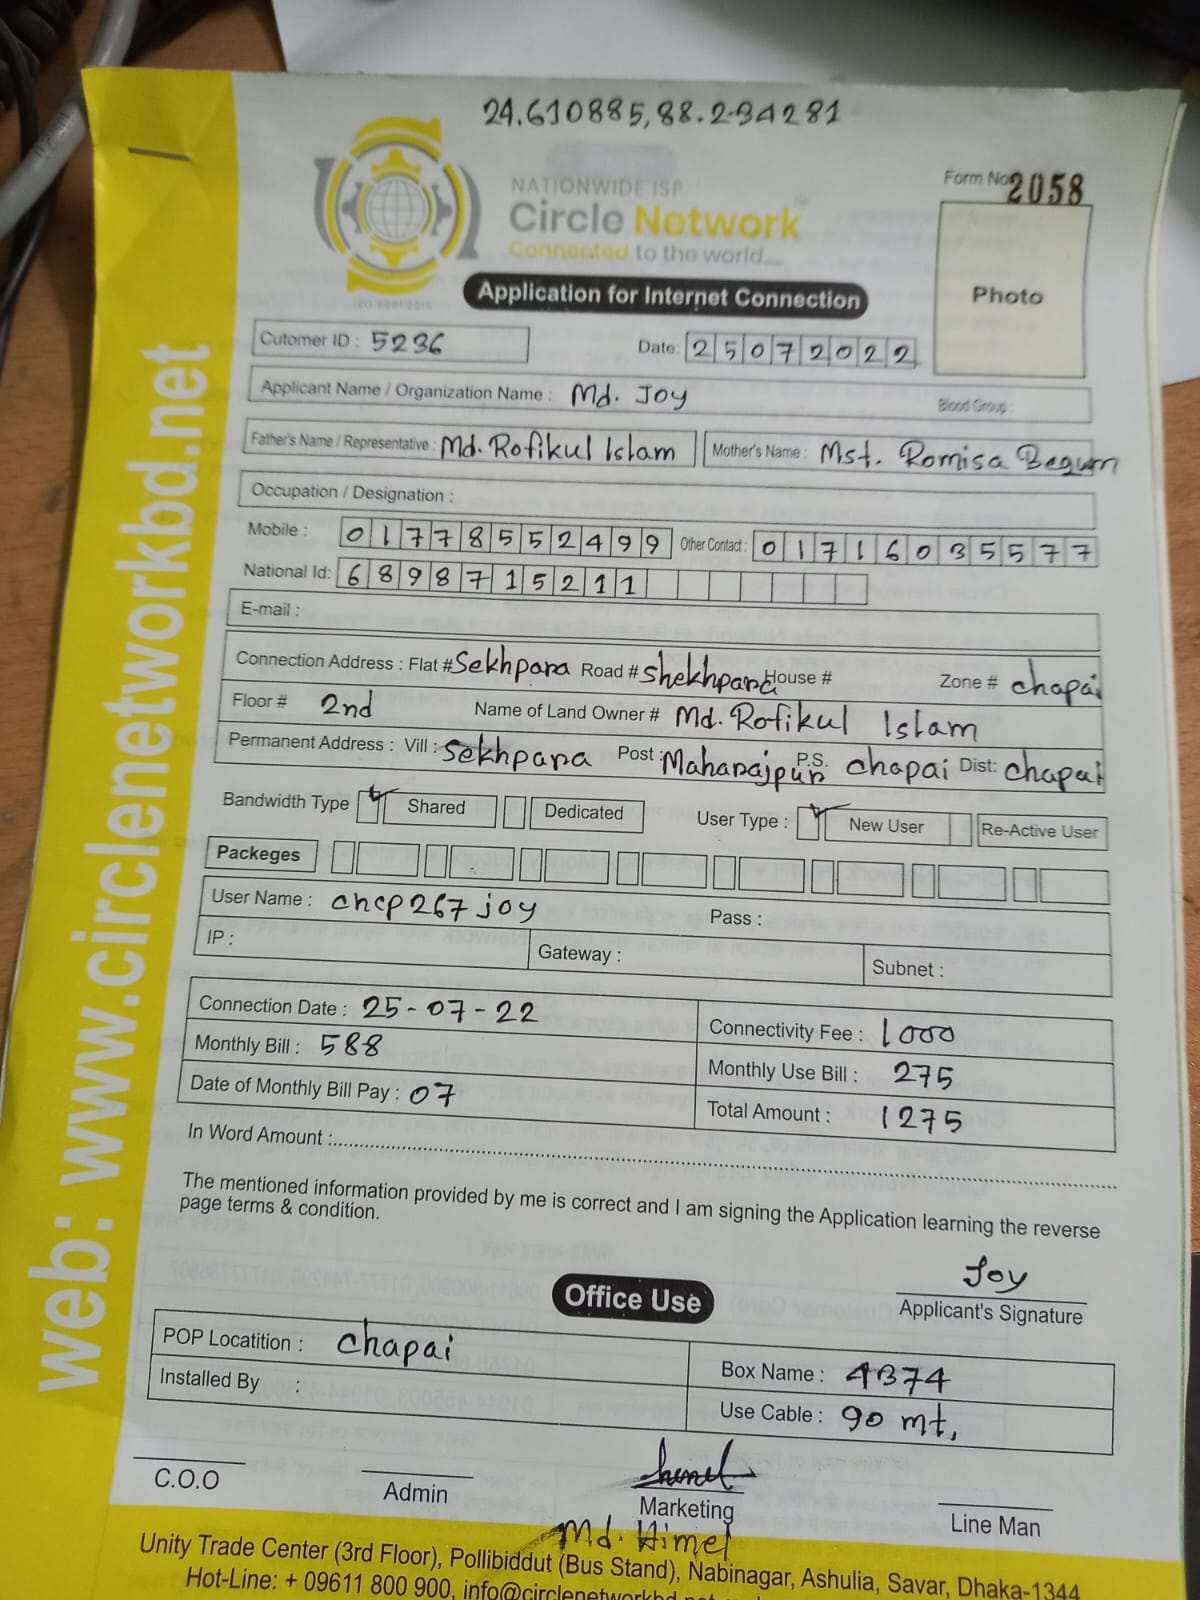 24.610885,88.234281
NATIONWIDE ISP
Circle Network
Connected to the world....
ISO 9001:2015
Form No 2058
Photo
Application for Internet Connection
Cutomer ID : 5236 Date: 25072022
Applicant Name / Organization Name : Md. Joy Blood Group :
Father's Name / Representative : Md. Rofikul Islam Mother's Name : Mst. Romisa Begum
Occupation / Designation :
Mobile : 01778552499 Other Contact : 01716035577
National Id: 6898715211
E-mail :
Connection Address : Flat # Sekhpara Road # Shekhpara House # Zone # chapai
Floor # 2nd Name of Land Owner # Md. Rofikul Islam
Permanent Address : Vill : Sekhpara Post : Maharajpur P.S. chapai Dist: chapai
Bandwidth Type Shared Dedicated User Type : New User Re-Active User
Packeges
User Name : chcp267joy Pass :
IP : Gateway : Subnet :
Connection Date : 25-07-22 Connectivity Fee : 1000
Monthly Bill : 588 Monthly Use Bill : 275
Date of Monthly Bill Pay : 07 Total Amount : 1275
In Word Amount :
The mentioned information provided by me is correct and I am signing the Application learning the reverse
page terms & condition.
Joy
Applicant's Signature
Office Use
POP Locatition : chapai Box Name : 4374
Installed By : Use Cable : 90 mt.
C.O.O Admin Marketing Line Man
Md. Himel
Unity Trade Center (3rd Floor), Pollibiddut (Bus Stand), Nabinagar, Ashulia, Savar, Dhaka-1344
Hot-Line: + 09611 800 900,
web: www.circlenetworkbd.net